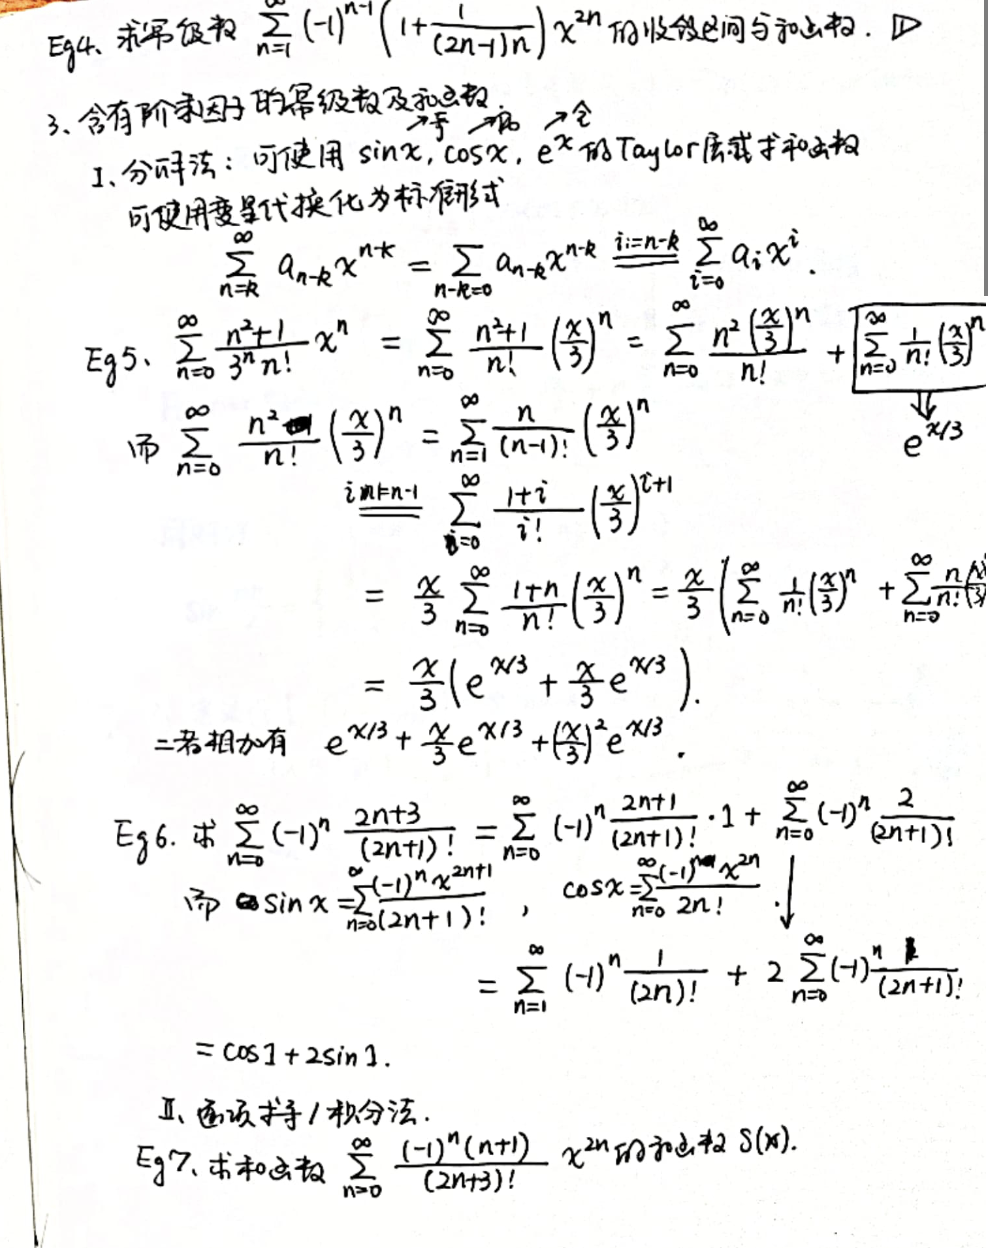 Eg4、求幂级数 $\sum_{n=1}^{\infty} (-1)^{n-1} \left(1+\frac{1}{(2n-1)n}\right) x^{2n}$ 的收敛区间与和函数. ▷
3、含有阶乘因子的幂级数及和函数.
→奇 →偶 →全
I、分解法：可使用 sinx, cosx, $e^x$ 的Taylor展式求和函数
可使用变量代换化为标准形式
$\sum_{n=k}^{\infty} a_{n-k} x^{n-k} = \sum_{n-k=0}^{\infty} a_{n-k} x^{n-k} \overset{i:=n-k}{=} \sum_{i=0}^{\infty} a_i x^i$.
Eg5、 $\sum_{n=0}^{\infty} \frac{n^2+1}{3^n n!} x^n = \sum_{n=0}^{\infty} \frac{n^2+1}{n!} \left(\frac{x}{3}\right)^n = \sum_{n=0}^{\infty} \frac{n^2 \left(\frac{x}{3}\right)^n}{n!} + \sum_{n=0}^{\infty} \frac{1}{n!} \left(\frac{x}{3}\right)^n$
$e^{x/3}$
而 $\sum_{n=0}^{\infty} \frac{n^2}{n!} \left(\frac{x}{3}\right)^n = \sum_{n=1}^{\infty} \frac{n}{(n-1)!} \left(\frac{x}{3}\right)^n$
$\overset{i=n-1}{=} \sum_{i=0}^{\infty} \frac{1+i}{i!} \left(\frac{x}{3}\right)^{i+1}$
$= \frac{x}{3} \sum_{n=0}^{\infty} \frac{1+n}{n!} \left(\frac{x}{3}\right)^n = \frac{x}{3} \left( \sum_{n=0}^{\infty} \frac{1}{n!} \left(\frac{x}{3}\right)^n + \sum_{n=0}^{\infty} \frac{n}{n!} \left(\frac{x}{3}\right)$
$= \frac{x}{3} \left( e^{x/3} + \frac{x}{3} e^{x/3} \right)$.
二者相加有 $e^{x/3} + \frac{x}{3} e^{x/3} + \left(\frac{x}{3}\right)^2 e^{x/3}$.
Eg6. 求 $\sum_{n=0}^{\infty} (-1)^n \frac{2n+3}{(2n+1)!} = \sum_{n=0}^{\infty} (-1)^n \frac{2n+1}{(2n+1)!} \cdot 1 + \sum_{n=0}^{\infty} (-1)^n \frac{2}{(2n+1)!}$
而 $\sin x = \sum_{n=0}^{\infty} \frac{(-1)^n x^{2n+1}}{(2n+1)!}$ , $\cos x = \sum_{n=0}^{\infty} \frac{(-1)^n x^{2n}}{2n!}$.
$= \sum_{n=1}^{\infty} (-1)^n \frac{1}{(2n)!} + 2 \sum_{n=0}^{\infty} (-1)^n \frac{1}{(2n+1)!}$
= cos1 + 2sin1.
II、逐项求导/积分法.
Eg7、求和函数 $\sum_{n=0}^{\infty} \frac{(-1)^n (n+1)}{(2n+3)!} x^{2n}$ 的和函数 S(x).